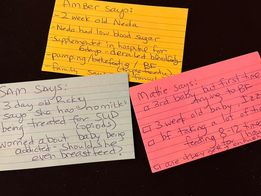 Amber says:
- 2 week old Neda
- Neda had low blood sugar
supplemented in hospital for
6 days - derailed
pumping / BF
family
SAM says:
3 day old Ricky
says she has no milk
being treated for SUD
(opioids)
worried about baby being
addicted - should she
even breastfeed?
Mattie says:
a 3rd baby, but first time
trying to BF
3 week old baby Izz
BF taking a lot of time
feeding 8-12 times